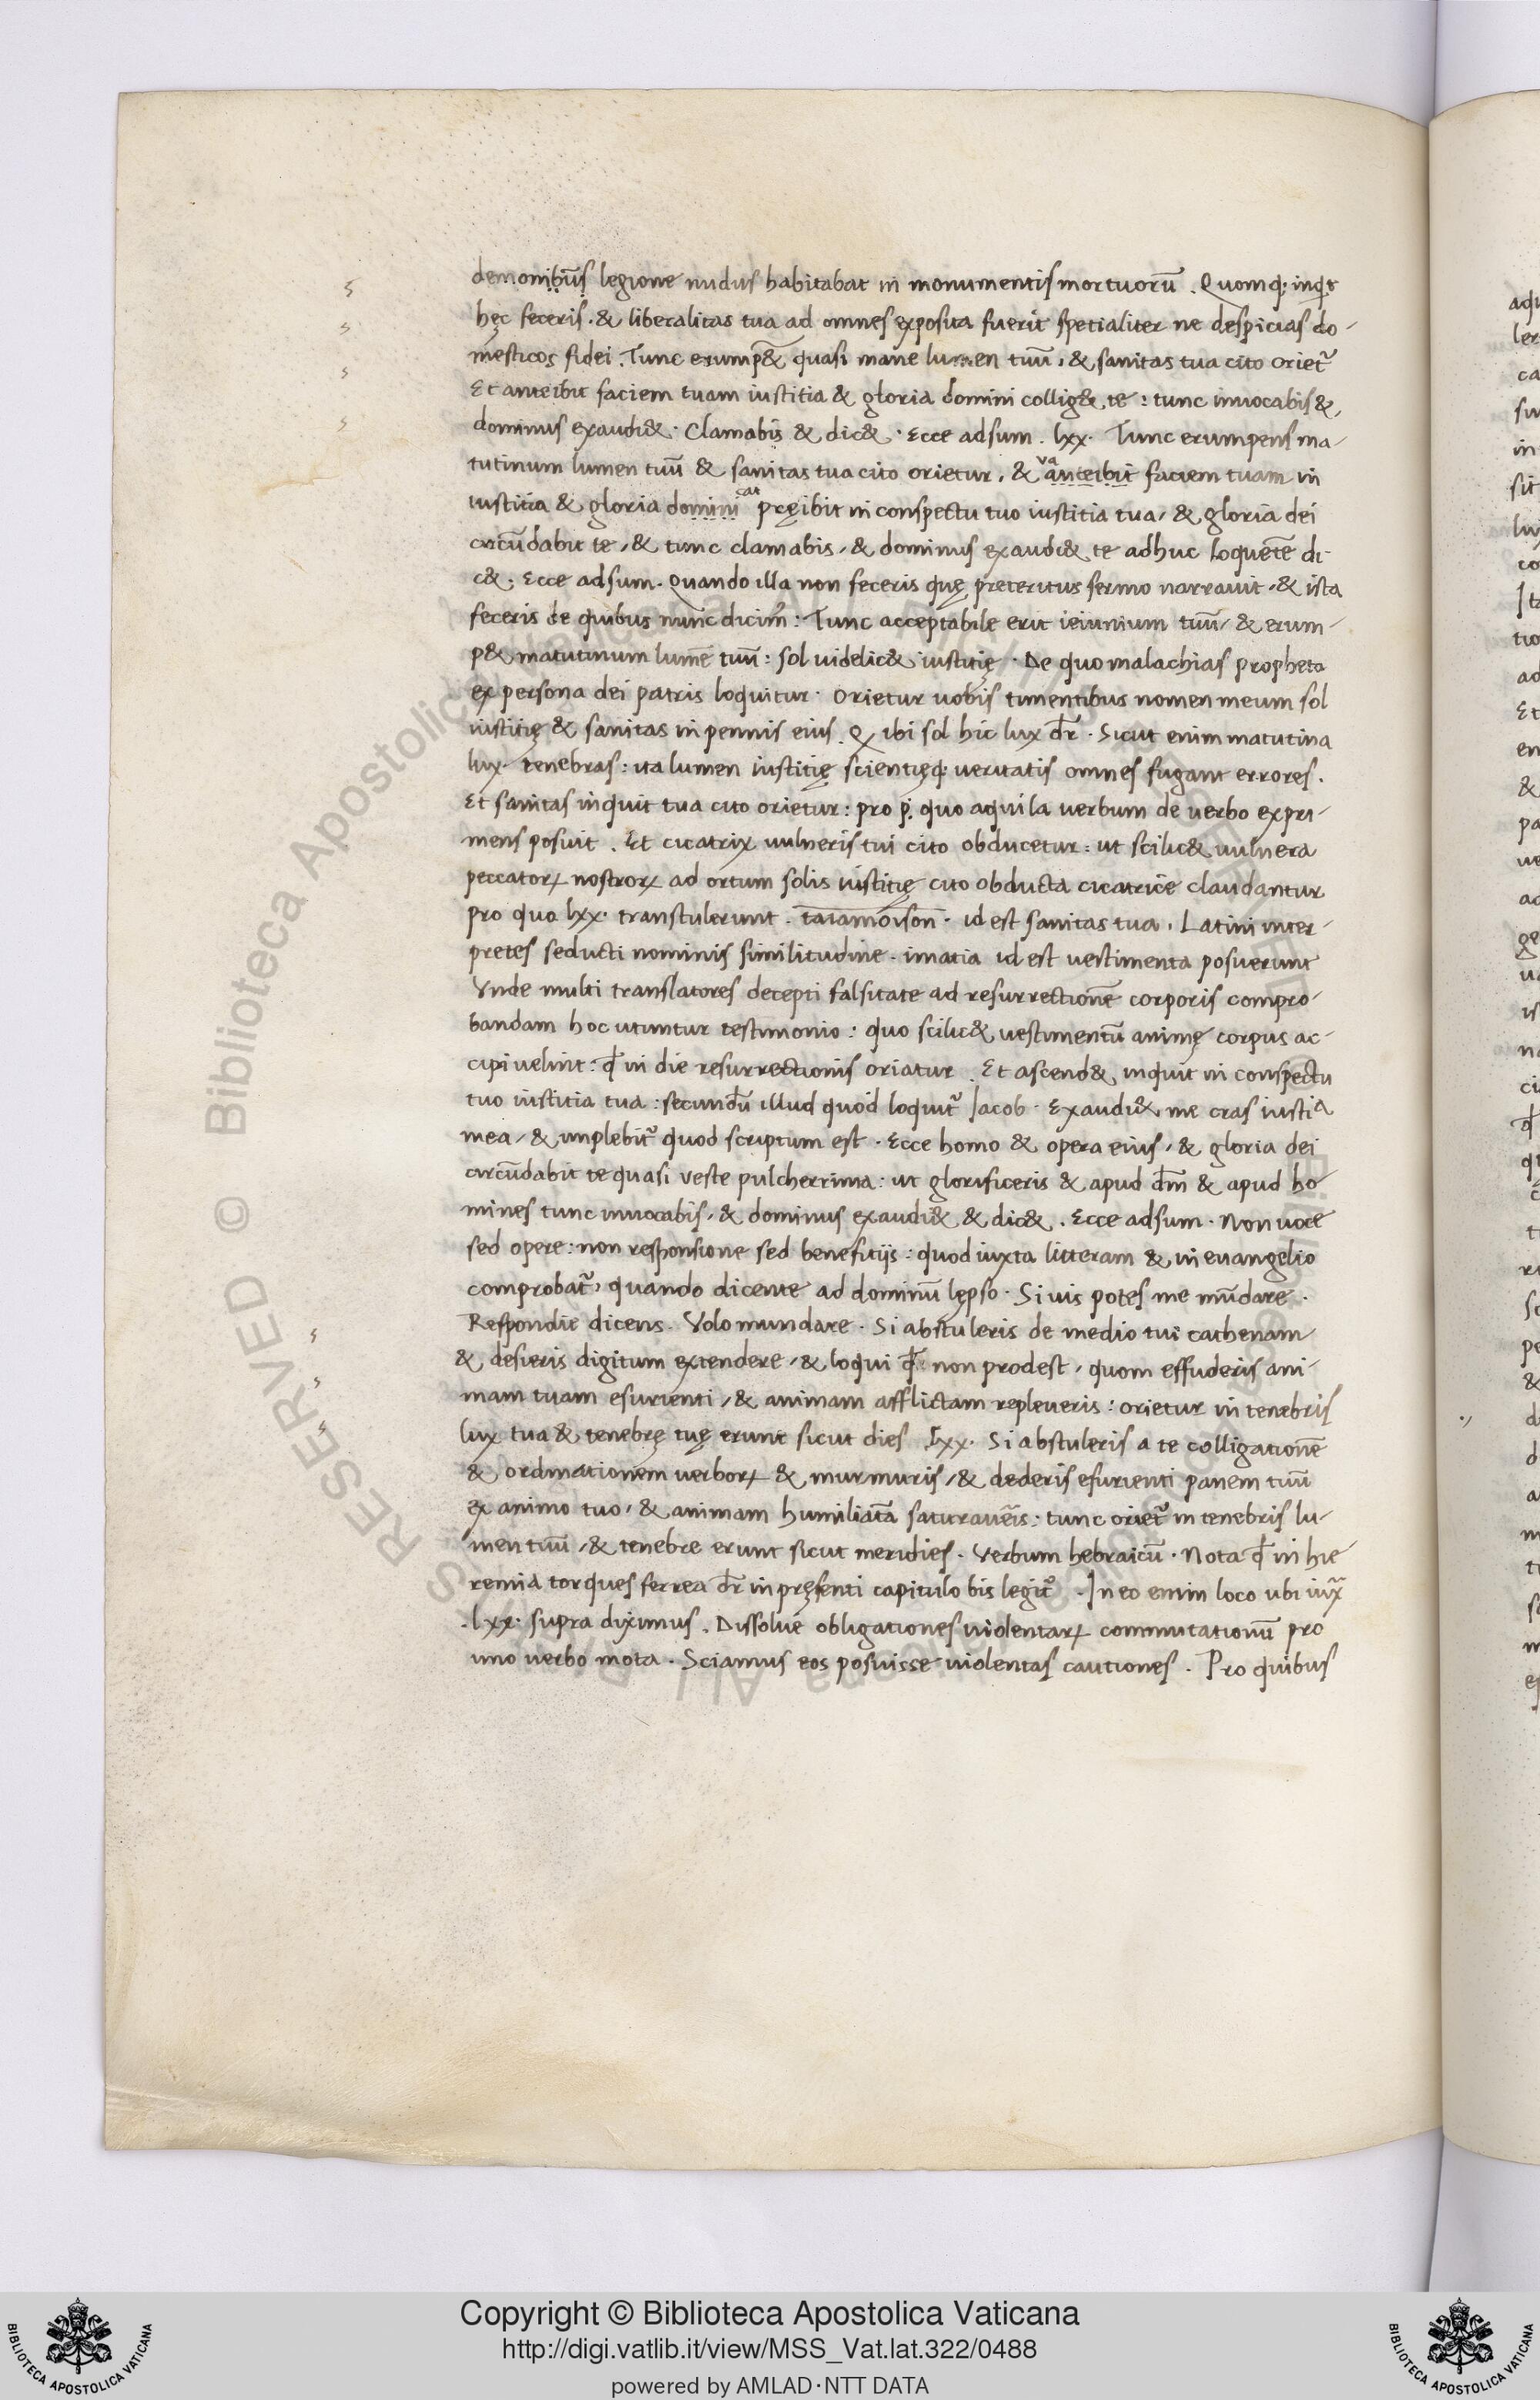 demonibus legione nudus habitabat in monumentis mortuorū . Quomq; inqͥt
hęc feceris . & liberalitas tua ad omnes exposita fuerit spetialiter ne despicias do-
mesticos fidei . Tunc erump& quasi mane lumen tuū , & sanitas tua cito oriet᷑
Et anteibit faciem tuam iustitia & gloria domini collig& te : tunc inuocabis &
dominus exaudi& . Clamabis & dic& . Ecce adsum . lxx . Tunc erumpens ma-
tutinum lumen tuū & sanitas tua cito orietur , & anteibit faciem tuam in
iustitia & gloria domini pręibit in conspectu tuo iustitia tua , & gloria dei
circūdabit te , & tunc clamabis , & dominus exaudi& te adhuc loquētē di-
c& . Ecce adsum . Quando illa non feceris quę preteritus sermo narrauit , & ista
feceris de quibus nunc dicim᷒ : Tunc acceptabile erit ieiunium tuū , & erum-
p& matutinum lumē tuū : sol uidelic& iustitię . De quo malachias propheta
ex persona dei patris loquitur . Orietur uobis timentibus nomen meum sol
iustitię & sanitas in pennis eius . Q ibi sol hic lux dr̄ . Sicut enim matutina
lux tenebras : ita lumen iustitię scientięq; ueritatis omnes fugant errores .
Et sanitas inquit tua cito orietur : pro quo aquila uerbum de uerbo expri-
mens posuit . Et cicatrix uulneris tui cito obducetur : ut scilic& uulnera
peccatorꝝ nostrorꝝ ad ortum solis iustitię cito obducta cicatrice claudantur
pro quo lxx . transtulerunt . taiamoison . id est sanitas tua . Latini inter-
pretes seducti nominis similitudine . imatia id est uestimenta posuerunt
Vnde multi translatores decepti falsitate ad resurrectionē corporis compro-
bandam hoc utuntur testimonio : quo scilic& uestimentū animę corpus ac-
cipi uelint : qđ in die resurrectionis oriatur . Et ascend& inquit in conspectu
tuo iustitia tua : secundū illud quod loquit᷑ Jacob . Exaudi& me cras iustia
mea , & implebit᷑ quod scriptum est . Ecce homo & opera eius , & gloria dei
circūdabit te quasi veste pulcherrima : ut glorificeris & apud dm̄ & apud ho
mines tunc inuocabis , & dominus exaudi& & dic& . Ecce adsum . Non uoce
sed opere : non responsione sed benefitijs : quod iuxta litteram & in euangelio
comprobat᷑ , quando dicente ad dominū lępso . Si uis potes me mūdare .
Respondit dicens . Volo mundare . Si abstuleris de medio tui cathenam
& desieris digitum extendere , & loqui qđ non prodest , quom effuderis ani-
mam tuam esurienti , & animam afflictam repleueris : orietur in tenebris
lux tua & tenebrę tuę erunt sicut dies . Lxx . Si abstuleris a te colligationē
& ordinationem uerborꝝ & murmuris , & dederis esurienti panem tuū
ex animo tuo , & animam humiliatā saturaueris : tunc oriet᷑ in tenebris lu-
men tuū , & tenebre erunt sicut meridies . Verbum hebraicū . Nota qđ in hie
remia torques ferrea dr̄ in pręsenti capitulo bis legit᷑ . In eo enim loco ubi iuxͣ
. lxx . supra diximus . Dissolue obligationes uiolentarꝝ commutationū pro
uno uerbo mota . Sciamus eos posuisse uiolentas cautiones . Pro quibus
Copyright © Biblioteca Apostolica Vaticana
http://digi.vatlib.it/view/MSS_Vat.lat.322/0488
powered by AMLAD·NTT DATA
BIBLIOTECA APOSTOLICA VATICANA
BIBLIOTECA APOSTOLICA VATICANA